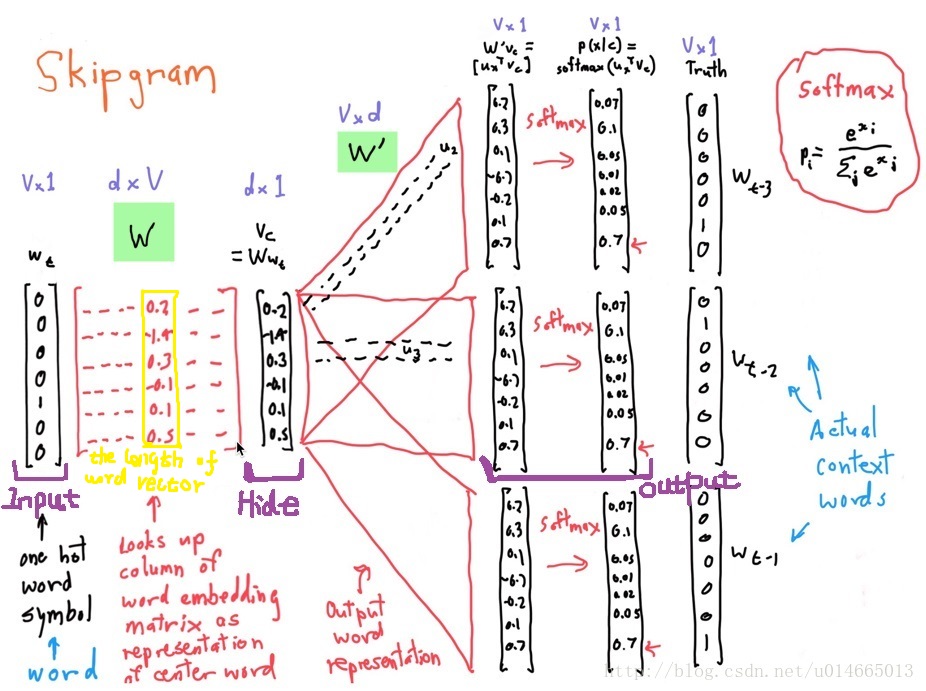 Skipgram
V×1
w_t
0
0
0
0
1
0
0
Input
one hot
word
symbol
word
d×V
W
0.2
-1.4
0.3
-0.1
0.1
0.5
the length of
word vector
Looks up
column of
word embedding
matrix as
representation
of center word
d×1
V_c
= Ww_t
0.2
-1.4
0.3
-0.1
0.1
0.5
Hide
V×d
W'
u_2
u_3
Output
word
representation
V×1
W'v_c =
[u_x^T v_c]
V×1
p(x|c) =
softmax(u_x^T v_c)
V×1
Truth
6.2
6.3
0.1
-6.7
-0.2
0.1
0.7
softmax
0.07
0.1
0.05
0.01
0.02
0.05
0.7
0
0
0
0
0
1
0
W_t-3
6.2
6.3
0.1
-6.7
-0.2
0.1
0.7
softmax
0.07
0.1
0.05
0.01
0.02
0.05
0.7
0
1
0
0
0
0
0
W_t-2
output
6.2
6.3
0.1
-6.7
-0.2
0.1
0.7
softmax
0.07
0.1
0.05
0.01
0.02
0.05
0.7
0
0
0
0
0
0
1
W_t-1
softmax
p_i = e^x_i / Σ_j e^x_j
Actual
context
words
http://blog.csdn.net/u014665013